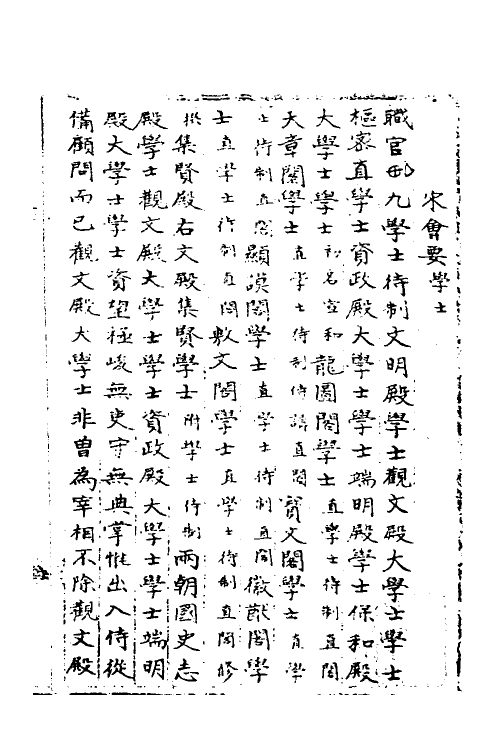 宋會要 學士
職官 九學士待制文明殿學士觀文殿大學士學士
樞密直學士資政殿大學士學士端明殿學士保和殿
大學士學士 初名宣和 龍圖閣學士 直學士待制直閣
天章閣學士 直學士待制侍講直閣 寶文閣學士 直學
士待制直閣 顯謨閣學士 直學士待制直閣 徽猷閣學
士 直學士待制直閣 敷文閣學士 直學士待制直閣修
撰 集賢殿右文殿集賢學士 附學士待制 兩朝國史志
殿學士觀文殿大學士學士資政殿大學士學士端明
殿大學士學士資望極峻無吏守無典掌惟出入侍從
備顧問而已觀文殿大學士非曾為宰相不除觀文殿